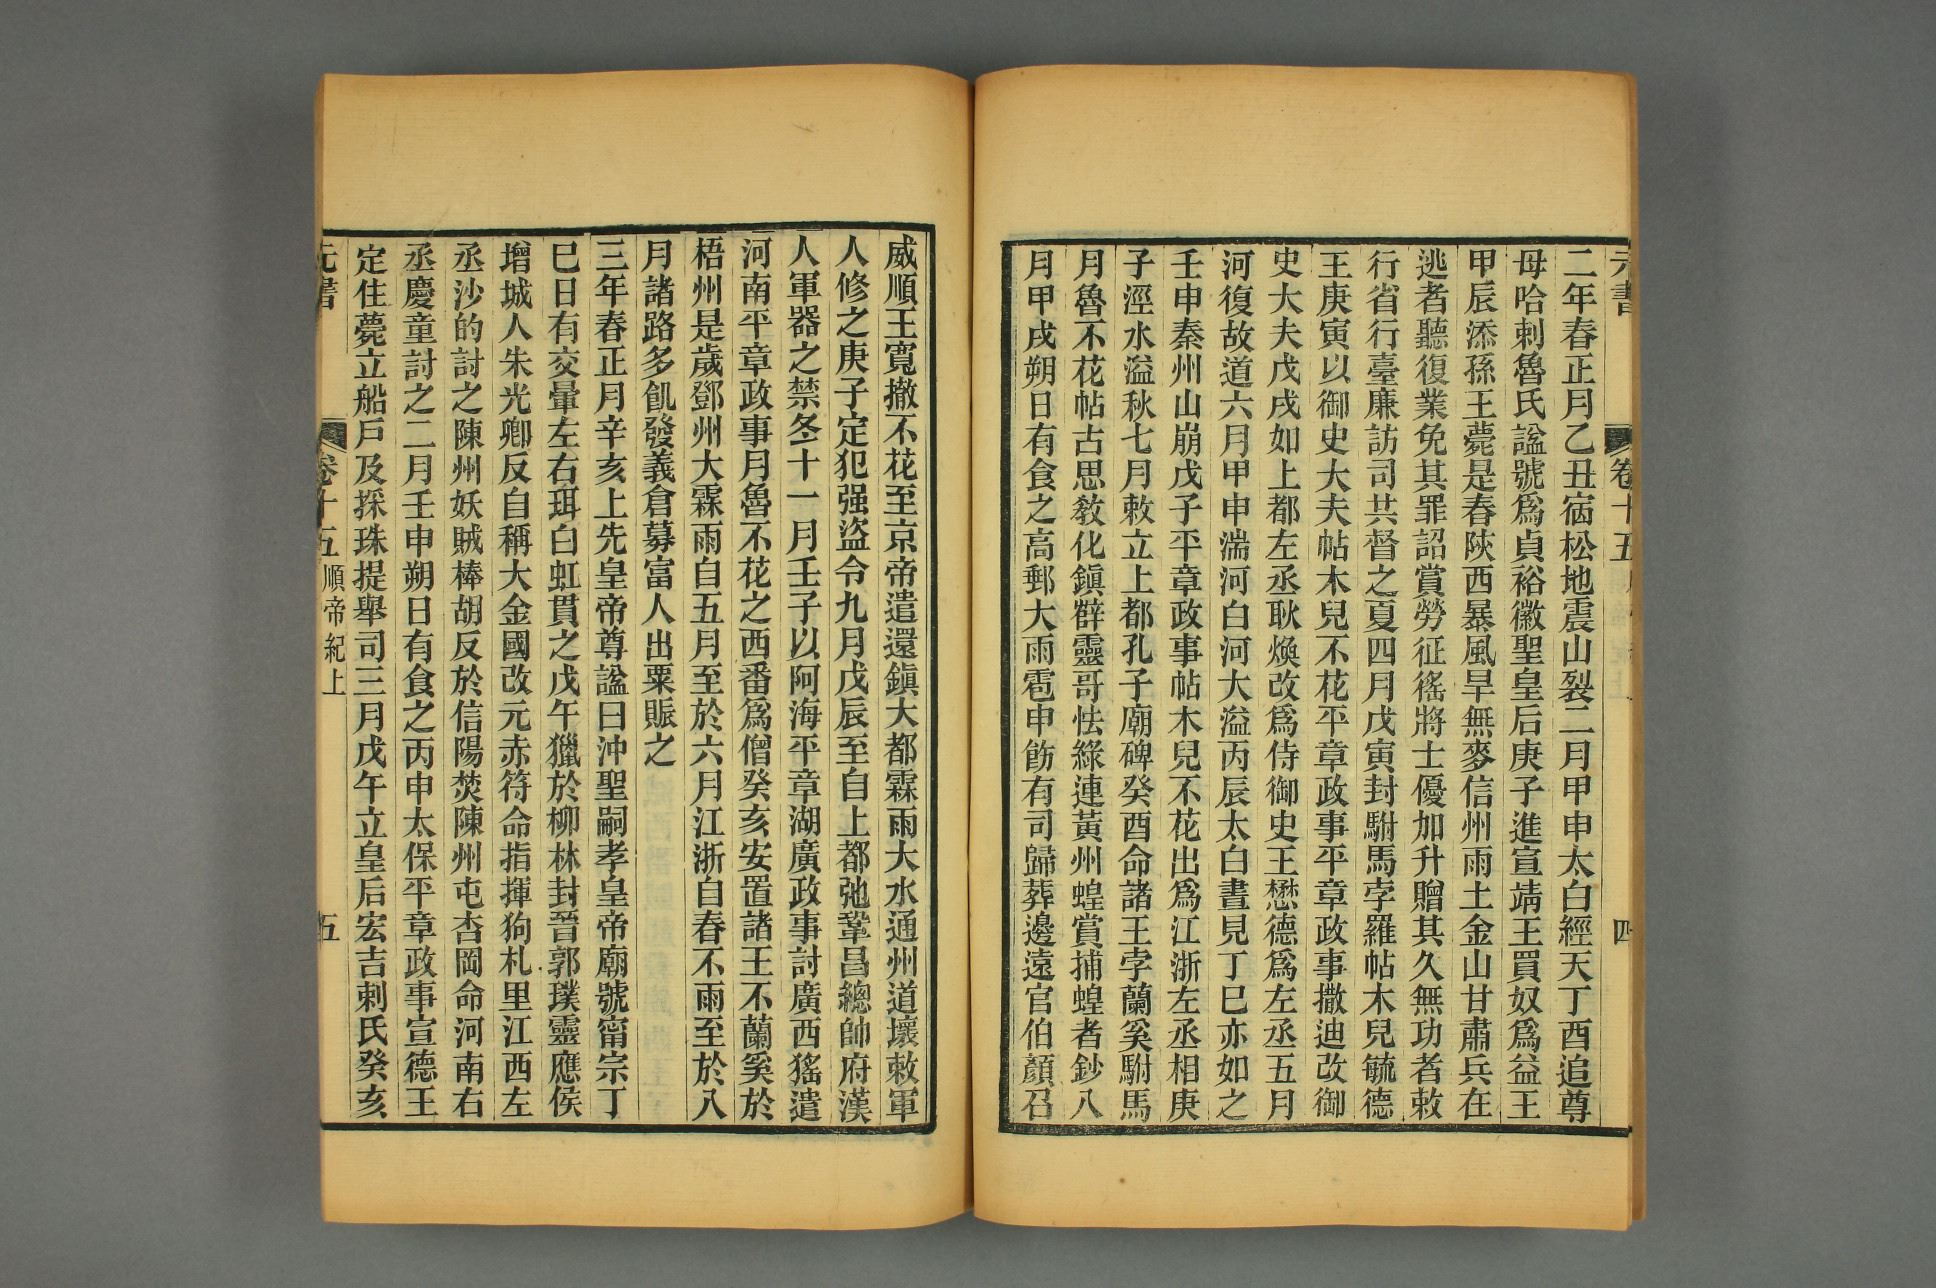 元書
卷十五
四
二年春正月乙丑宿松地震山裂二月甲申太白經天丁酉追尊
母哈剌魯氏諡號爲貞裕徽聖皇后庚子進宣靖王買奴爲益王
甲辰添孫王薨是春陝西暴風旱無麥信州雨土金山甘肅兵在
逃者聽復業免其罪詔賞勞征徭將士優加升贈其久無功者敕
行省行臺廉訪司共督之夏四月戊寅封駙馬孛羅帖木兒毓德
王庚寅以御史大夫帖木兒不花平章政事平章政事撒迪改御
史大夫戊戌如上都左丞耿煥改爲侍御史王懋德爲左丞五月
河復故道六月甲申湍河白河大溢丙辰太白晝見丁巳亦如之
壬申秦州山崩戊子平章政事帖木兒不花出爲江浙左丞相庚
子涇水溢秋七月敕立上都孔子廟碑癸酉命諸王孛蘭奚駙馬
月魯不花帖古思教化鎭薛靈哥怯綠連黃州蝗賞捕蝗者鈔八
月甲戌朔日有食之高郵大雨雹申飭有司歸葬邊遠官伯顏召
威順王寬撤不花至京帝遣還鎭大都霖雨大水通州道壞敕軍
人修之庚子定犯强盜令九月戊辰至自上都弛鞏昌總帥府漢
人軍器之禁冬十一月壬子以阿海平章湖廣政事討廣西猺遣
河南平章政事月魯不花之西番爲僧癸亥安置諸王不蘭奚於
梧州是歲鄧州大霖雨自五月至於六月江浙自春不雨至於八
月諸路多飢發義倉募富人出粟賑之
三年春正月辛亥上先皇帝尊諡曰沖聖嗣孝皇帝廟號甯宗丁
巳日有交暈左右珥白虹貫之戊午獵於柳林封晉郭璞靈應侯
增城人朱光卿反自稱大金國改元赤符命指揮狗札里江西左
丞沙的討之陳州妖賊棒胡反於信陽焚陳州屯杏岡命河南右
丞慶童討之二月壬申朔日有食之丙申太保平章政事宣德王
定住薨立船戶及採珠提舉司三月戊午立皇后宏吉剌氏癸亥
元書
卷十五
順帝紀上
五